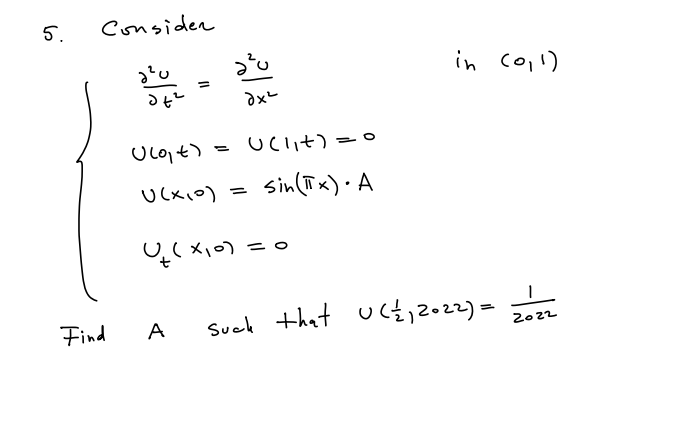 5. Consider
∂²U/∂t² = ∂²U/∂x² in (0,1)
U(0,t) = U(1,t) = 0
U(x,0) = sin(πx)·A
U_t(x,0) = 0
Find A such that U(½,2022) = 1/2022